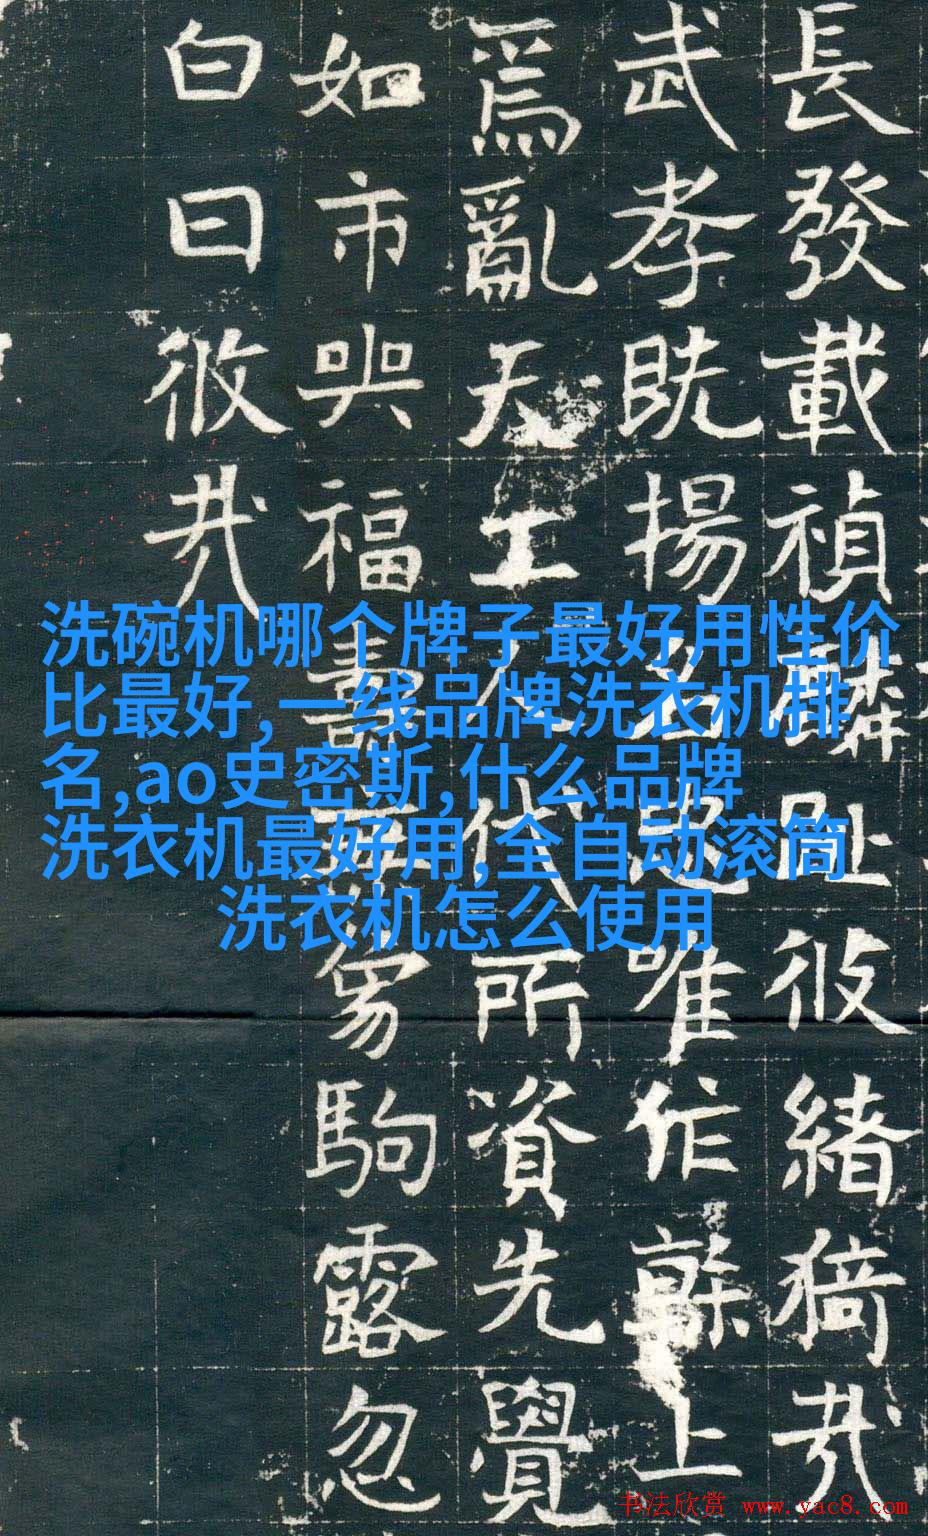 長發載禎麟趾彼緒猗哉
武孝既揚名忠唯作幹上
爲亂天工人代所資先覺
如市與福壽駒露忽
白日彼哉
洗碗机哪个牌子最好用性价
比最好,一线品牌洗衣机排
名,ao史密斯,什么品牌
洗衣机最好用,全自动滚筒
洗衣机怎么使用
书法欣赏 www.yac8.com